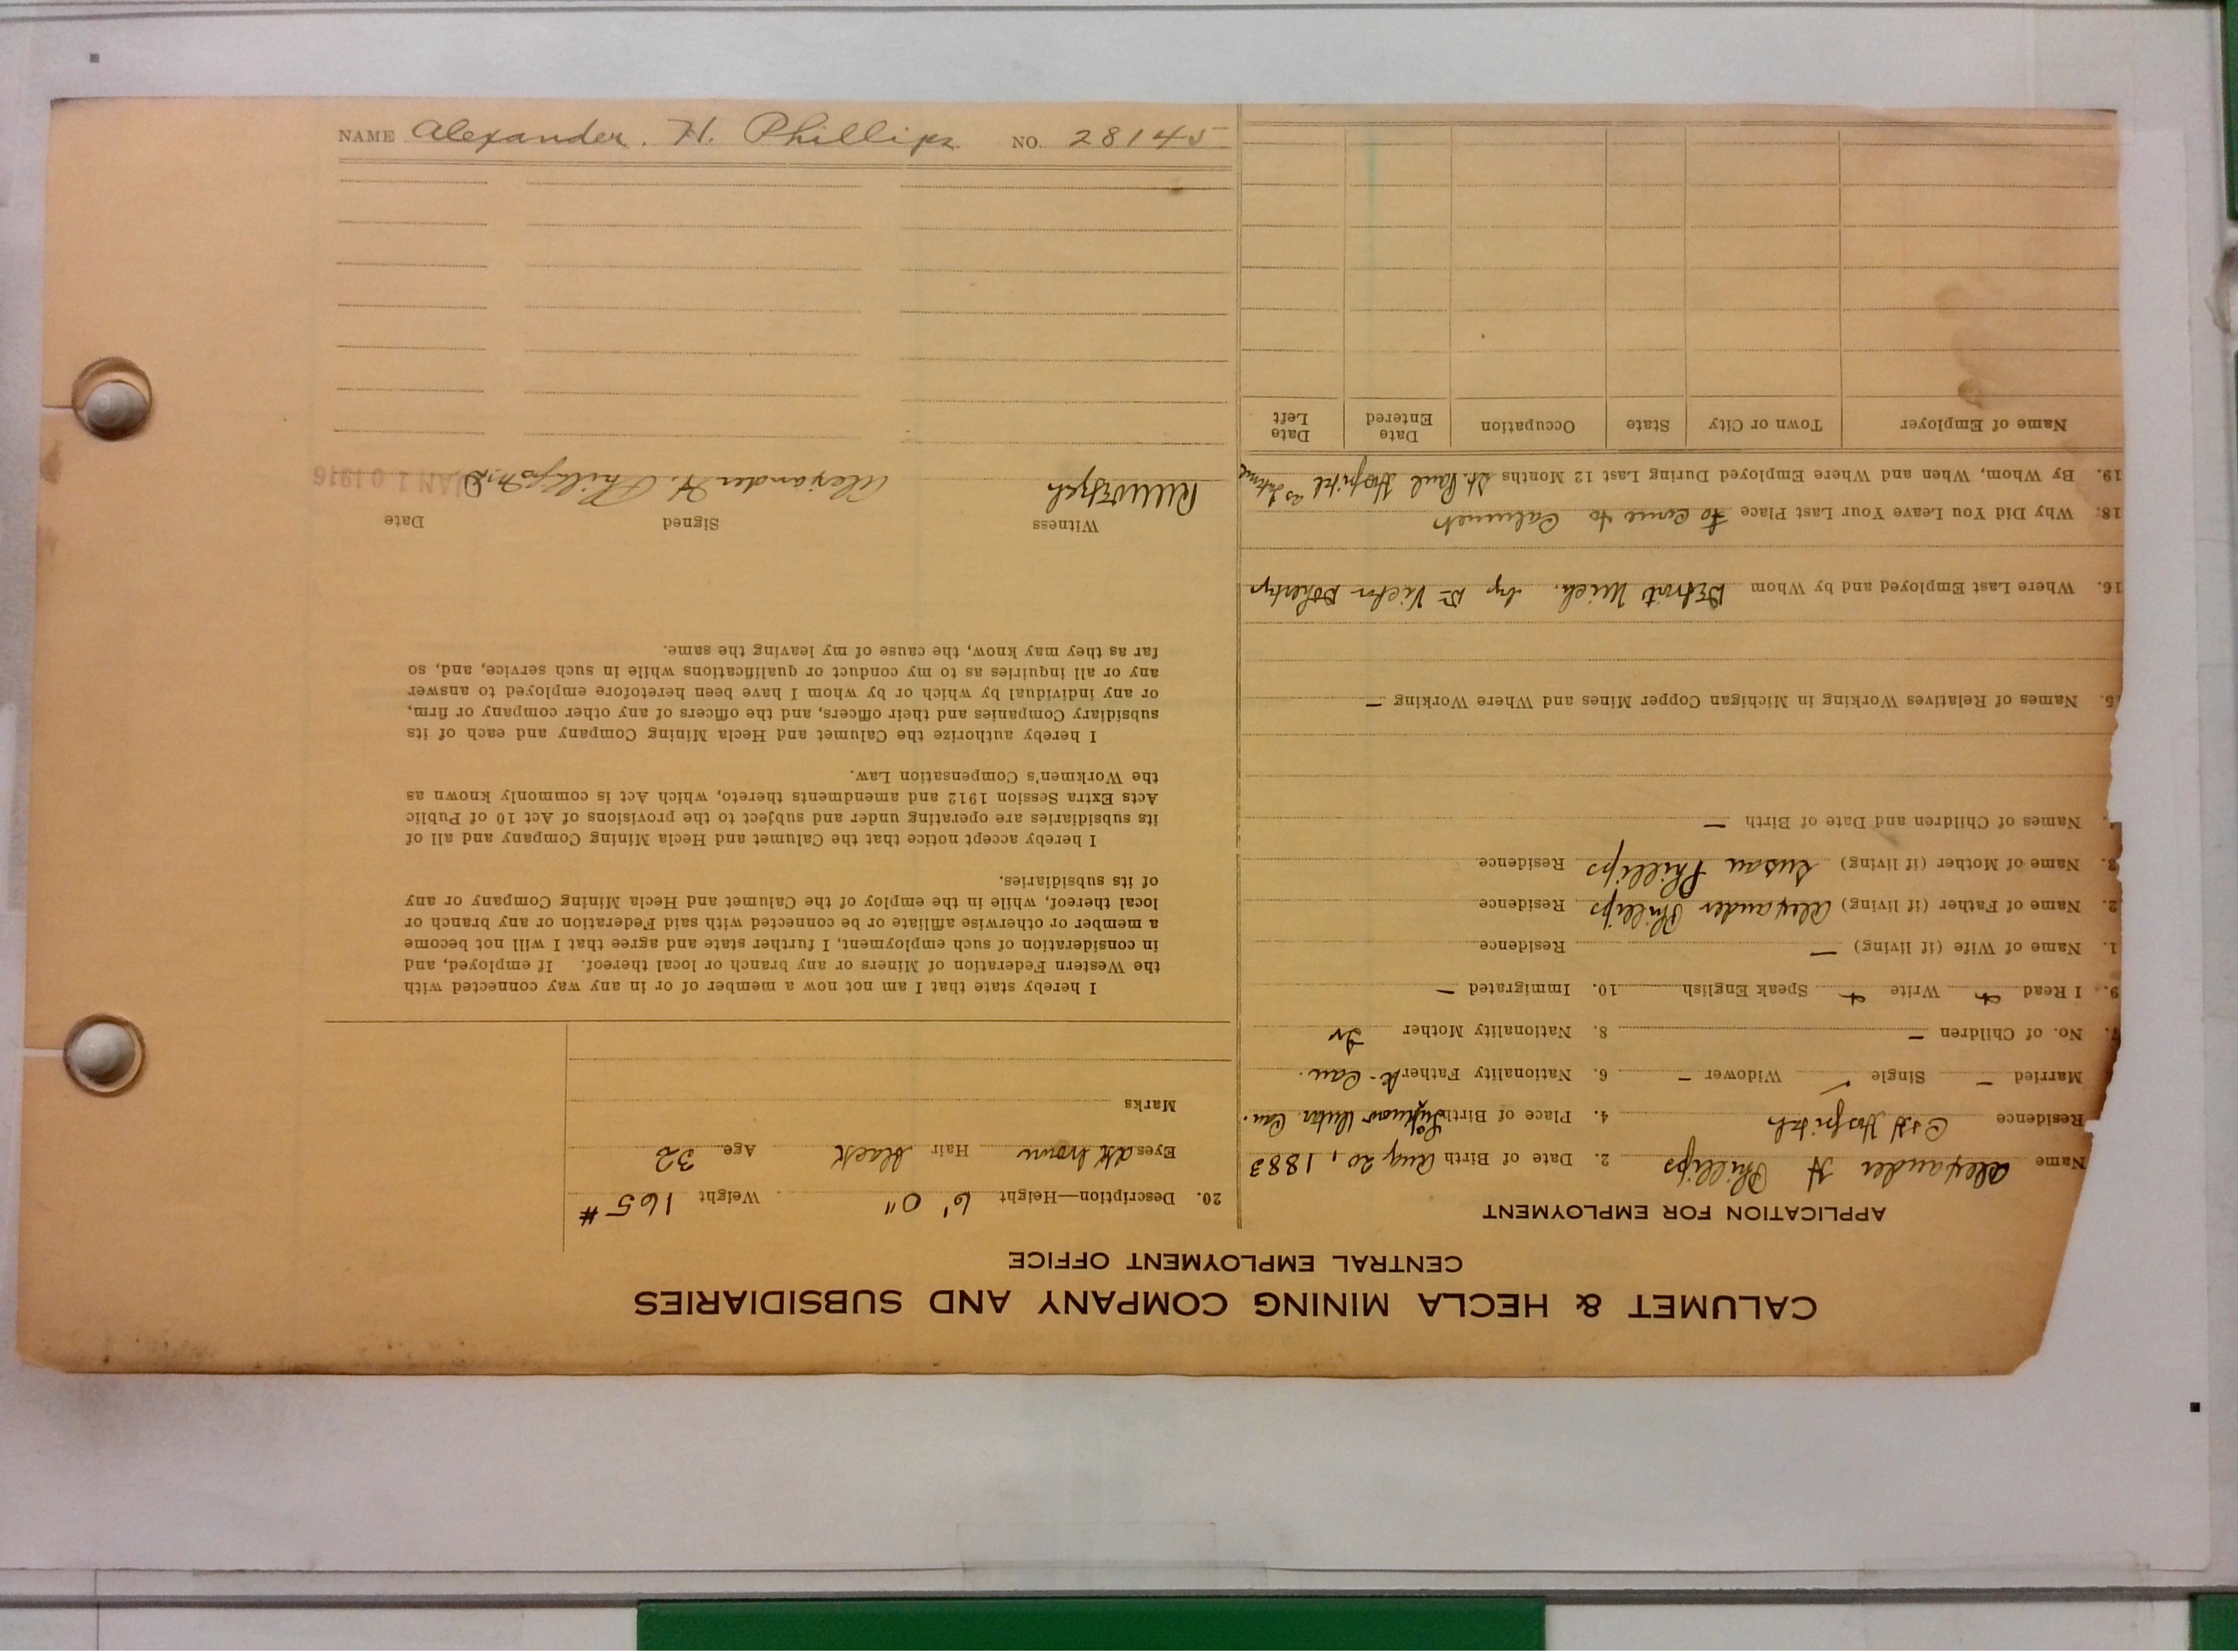 NAME Alexander. H. Phillips NO. 28145
CALUMET & HECLA MINING COMPANY AND SUBSIDIARIES
CENTRAL EMPLOYMENT OFFICE
APPLICATION FOR EMPLOYMENT
Name Alexander H Phillips 2. Date of Birth Aug 20, 1883
Residence C&H Hospital 4. Place of Birth Can.
Married — Single ✓ Widower — 6. Nationality Father Can.
7. No. of Children — 8. Nationality Mother Ir
9. I Read Write Speak English 10. Immigrated —
1. Name of Wife (if living) — Residence
2. Name of Father (if living) Alexander Phillips Residence
3. Name of Mother (if living) Susan Phillips Residence
Names of Children and Date of Birth —
5. Names of Relatives Working in Michigan Copper Mines and Where Working —
16. Where Last Employed and by Whom Detroit Mich. by Dr Victor
18. Why Did You Leave Your Last Place to come to Calumet
19. By Whom, When and Where Employed During Last 12 Months St. Paul Hospital as Interne
Name of Employer Town or City State Occupation Date Entered Date Left
20. Description—Height 6' 0" Weight 165#
Eyes dk brown Hair black Age 32
Marks
I hereby state that I am not now a member of or in any way connected with
the Western Federation of Miners or any branch or local thereof. If employed, and
in consideration of such employment, I further state and agree that I will not become
a member or otherwise affiliate or be connected with said Federation or any branch or
local thereof, while in the employ of the Calumet and Hecla Mining Company or any
of its subsidiaries.
I hereby accept notice that the Calumet and Hecla Mining Company and all of
its subsidiaries are operating under and subject to the provisions of Act 10 of Public
Acts Extra Session 1912 and amendments thereto, which Act is commonly known as
the Workmen's Compensation Law.
I hereby authorize the Calumet and Hecla Mining Company and each of its
subsidiary Companies and their officers, and the officers of any other company or firm,
or any individual by which or by whom I have been heretofore employed to answer
any or all inquiries as to my conduct or qualifications while in such service, and, so
far as they may know, the cause of my leaving the same.
Witness Signed Date
Alexander H. Phillips M.D JAN 10 1916